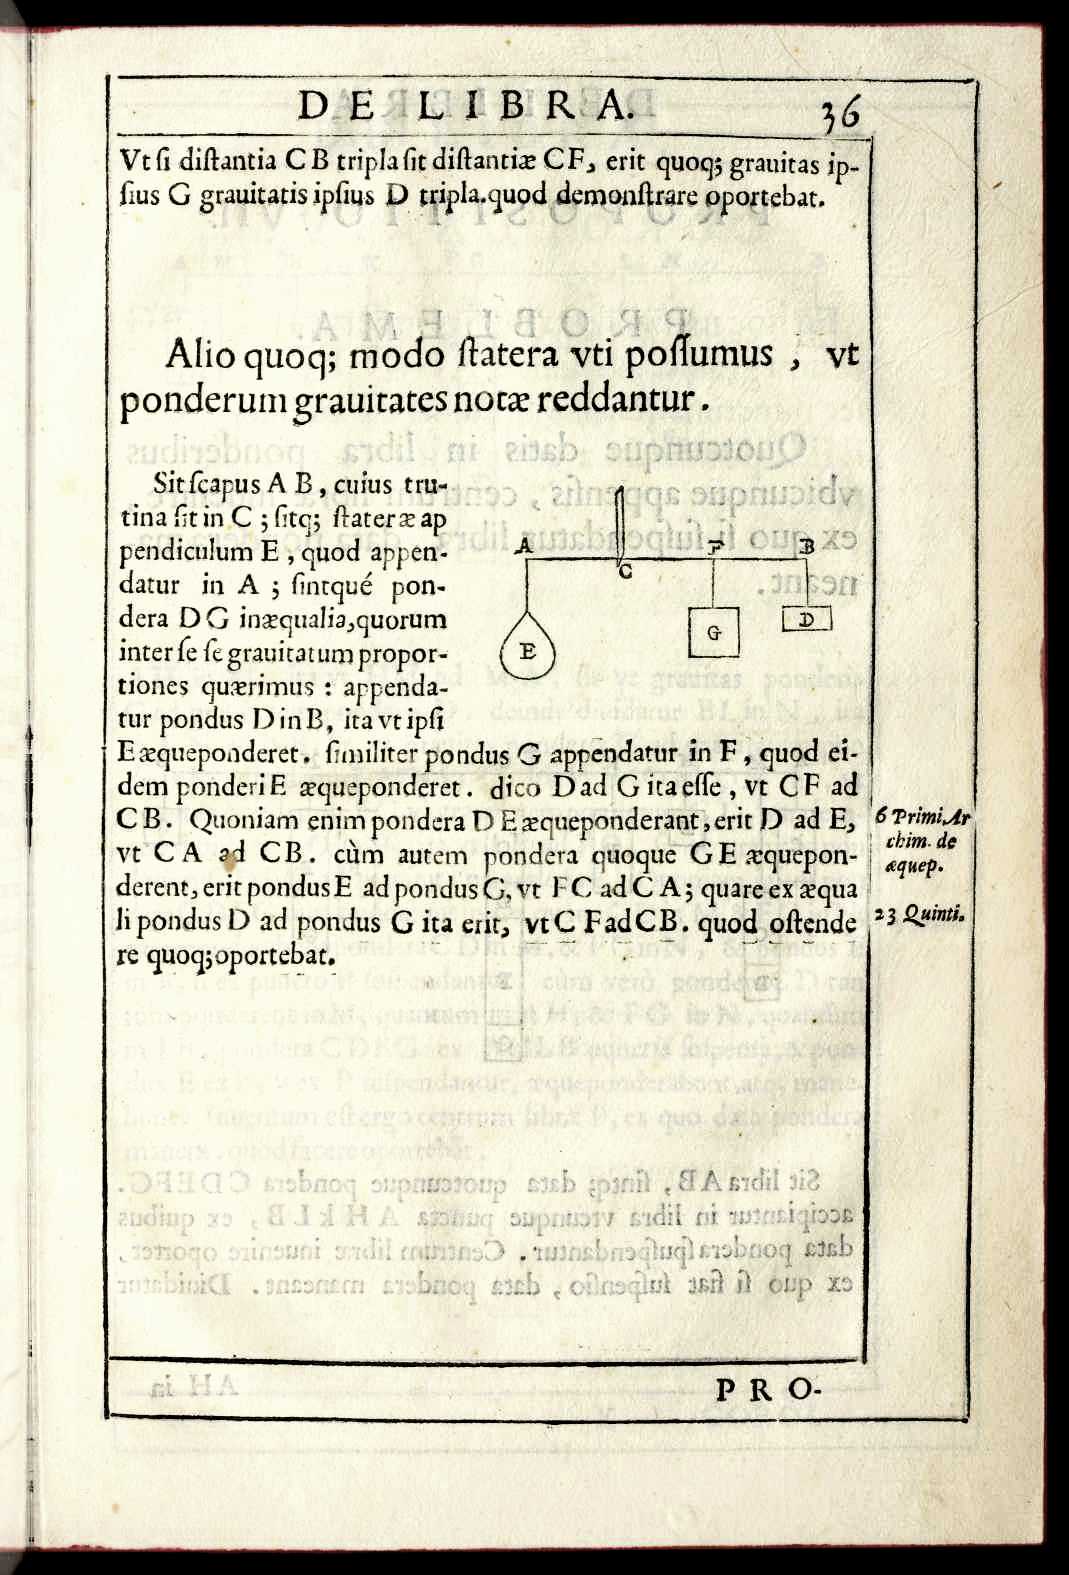 DE LIBRA. 36
Vt ſi diſtantia C B tripla ſit diſtantiæ C F, erit quoq; grauitas ip-
ſius G grauitatis ipſius D tripla. quod demonſtrare oportebat.
Alio quoq; modo ſtatera vti poſſumus, vt
ponderum grauitates notæ reddantur.
Sit ſcapus A B, cuius tru-
tina ſit in C; ſitq; ſtateræ ap
pendiculum E, quod appen-
datur in A; ſintqué pon-
dera D G inæqualia, quorum
inter ſe ſe grauitatum propor-
tiones quærimus: appenda-
tur pondus D in B, ita vt ipſi
E æqueponderet. ſimiliter pondus G appendatur in F, quod ei-
dem ponderi E æqueponderet. dico D ad G ita eſſe, vt C F ad
C B. Quoniam enim pondera D E æqueponderant, erit D ad E,
vt C A ad C B. cùm autem pondera quoque G E æquepon-
derent, erit pondus E ad pondus G, vt F C ad C A; quare ex æqua
li pondus D ad pondus G ita erit, vt C F ad C B. quod oſtende
re quoq; oportebat.
A
F
B
C
G
D
E
6 Primi Ar
chim. de
æquep.
23 Quinti.
PRO-